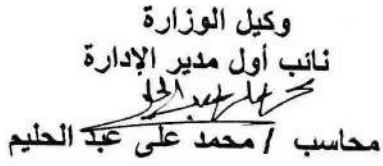 وكيل الوزارة
نائب أول مدير الإدارة
محاسب / محمد على عبد الحليم